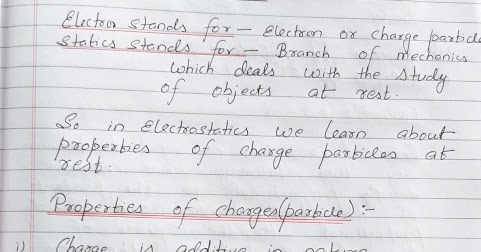 Electron Stands for - Electron or charge particle
Statics Stands for - Branch of mechanics
which deals with the study
of objects at rest.
So in Electrostatics we learn about
properties of charge particles at
rest.
Properties of charges(particle) :-
i) Charge is additive in nature